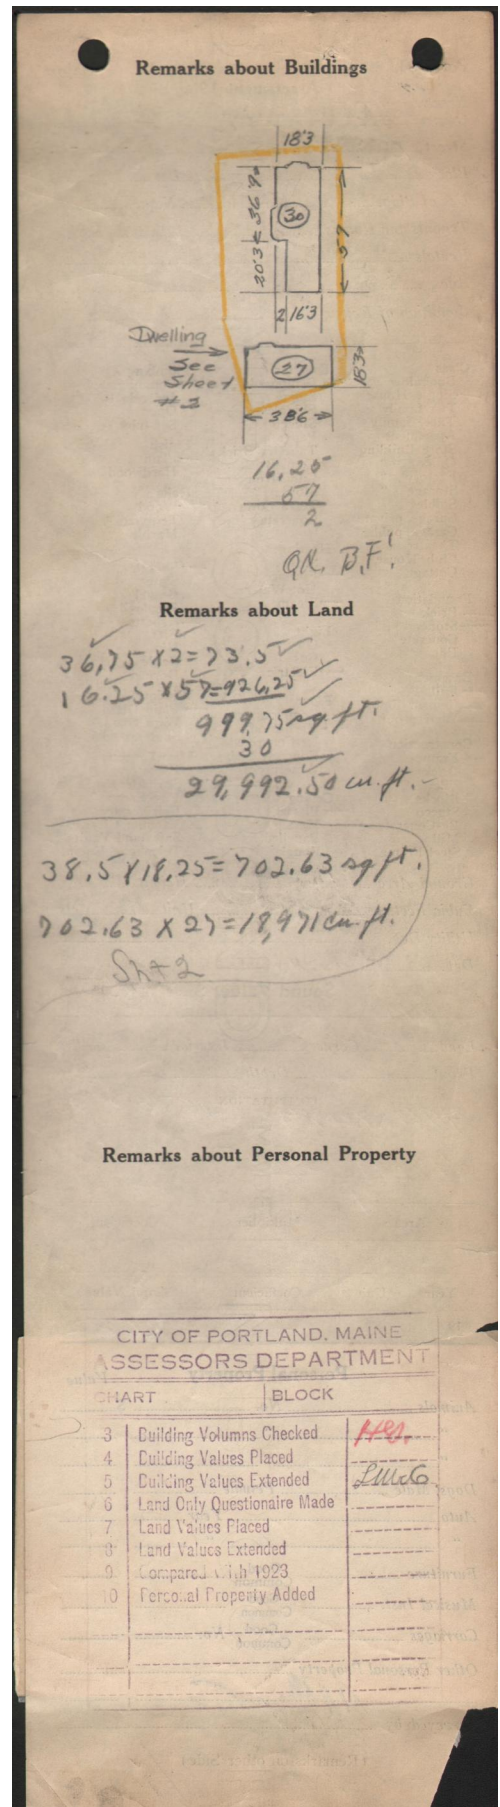 Remarks about Buildings
18'3
36'9
30
20'3
57
2 16'3
Dwelling
See
Sheet
#2
27
18'3
38'6
16,25
57
2
O.K. B.F.
Remarks about Land
36,75 X 2 = 73.5
16.25 X 57 = 926,25
999,75 sq. ft.
30
29,992.50 cu. ft.
38.5 X 18.25 = 702.63 sq ft.
702.63 X 27 = 18,971 cu. ft.
Sht 2
Remarks about Personal Property
CITY OF PORTLAND, MAINE
ASSESSORS DEPARTMENT
CHART BLOCK
3 Building Volumns Checked
4 Building Values Placed
5 Building Values Extended
6 Land Only Questionaire Made
7 Land Values Placed
8 Land Values Extended
9 Compared with 1923
10 Personal Property Added